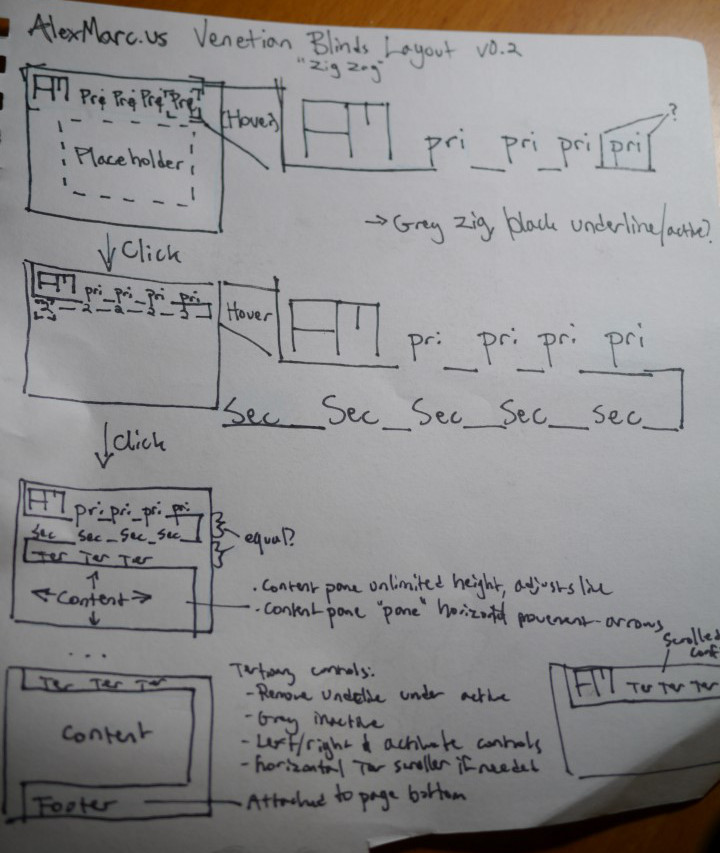 AlexMarc.us Venetian Blinds Layout v0.2
"Zig Zag"
AM Pri Pri Pri Pri
Placeholder
(Hover)
AM pri pri pri pri
?
→ Grey zig, black underline/active?
Click
AM pri pri pri pri
2 2 2 2 2
Hover
AM pri pri pri pri
Sec Sec Sec Sec Sec
Click
AM pri pri pri pri
Sec Sec Sec Sec
Ter Ter Ter
Content
equal?
· Content pane unlimited height, adjusts live
· Content pane "pane" horizontal movement - arrows
...
Ter Ter Ter
Content
Footer
Tertiary controls:
- Remove underline under active
- Grey inactive
- Left/right & activate controls
- Horizontal Ter scroller if needed
Attached to page bottom
Scrolled
AM Ter Ter Ter